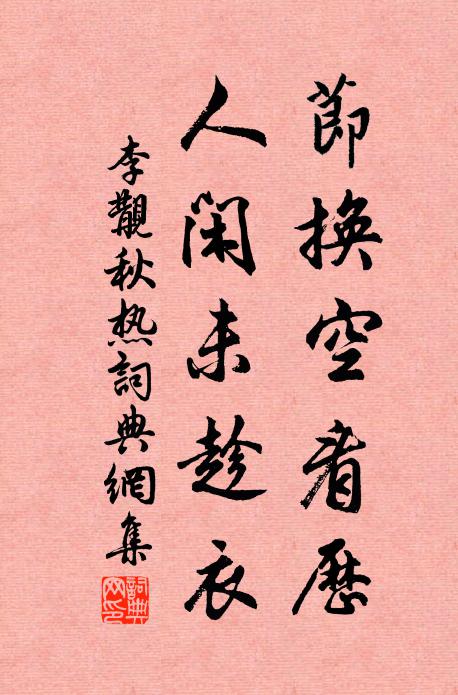 節換空看歷
人閑未趁衣
李觀秋热詞典網集
詞典
网印